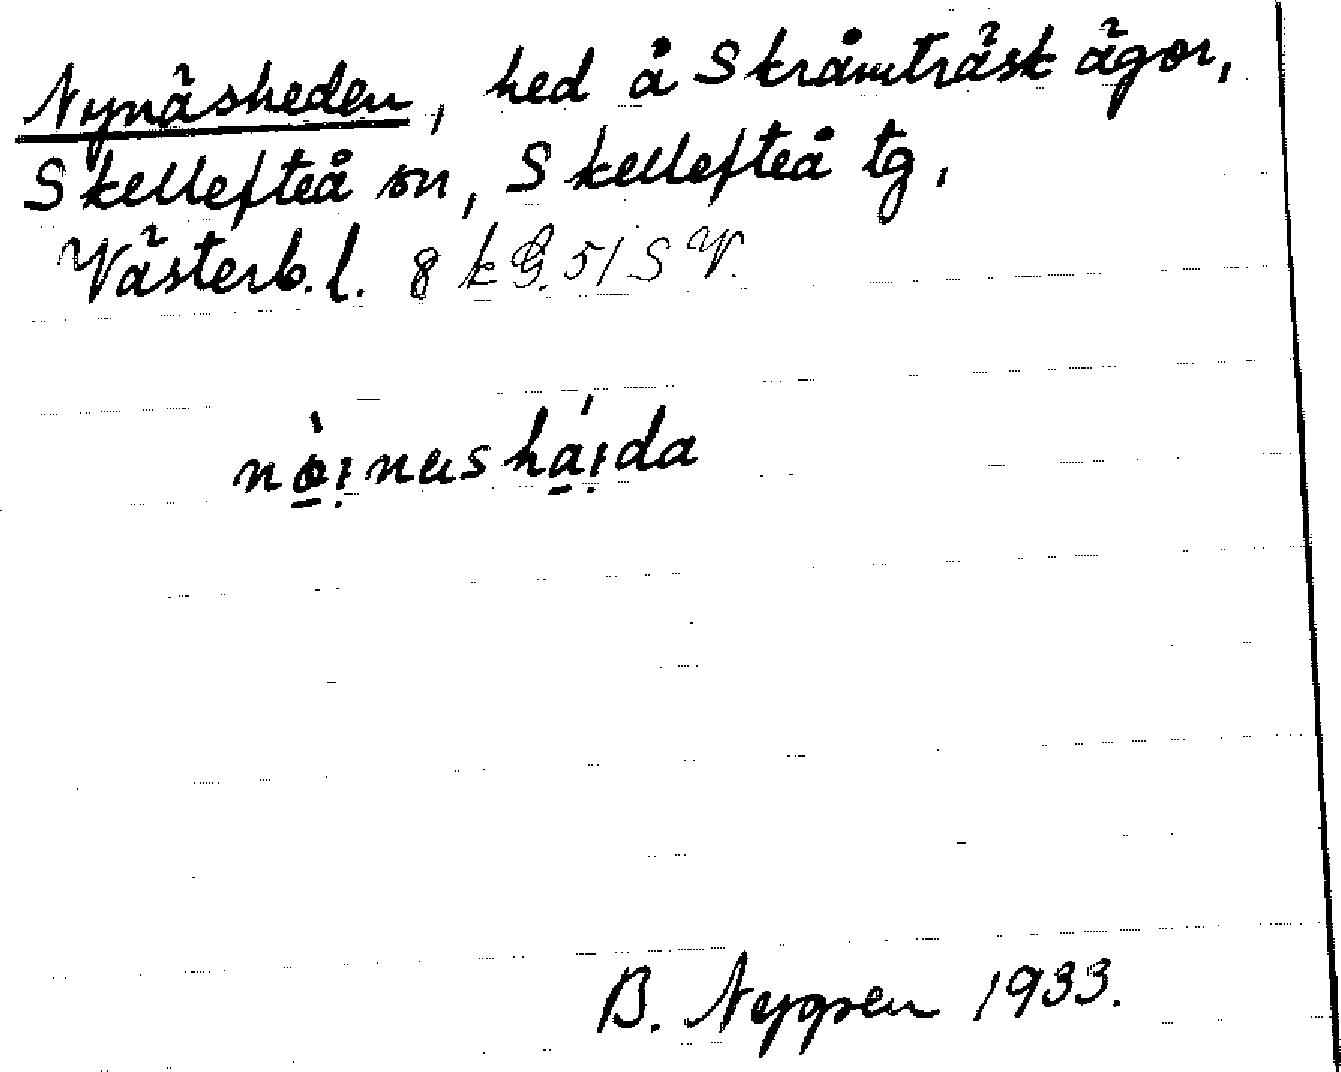 Nynäsheden, hed å Skråmträsk ägor,
Skellefteå sn, Skellefteå tg,
Västerb. l. 8 k G. 51 S V.
nò̱ịnɐshá̱ịda
B. 1933.